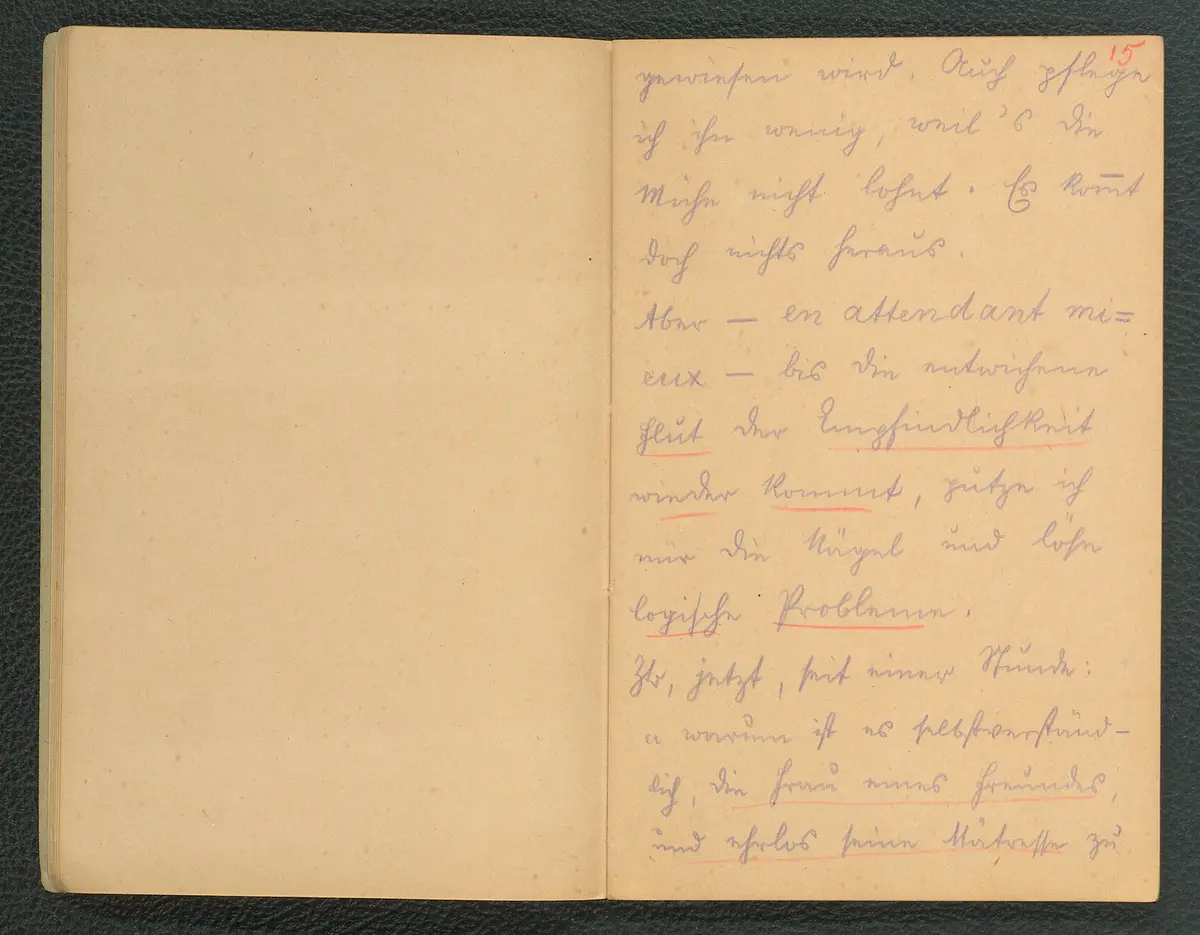 15
gewiesen wird. Auch pflege
ich ihn wenig, weil's die
Mühe nicht lohnt. Es kom̅t
doch nichts heraus.
Aber — en attendant mi=
eux — bis die entwichene
Flut der Empfindlichkeit
wieder kommt, putze ich
mir die Nägel und löse
logische Probleme.
Zb, jetzt, seit einer Stunde:
a warum ist es selbstverständ–
lich, die Frau eines Freundes,
und ehrlos seine Mätresse zu